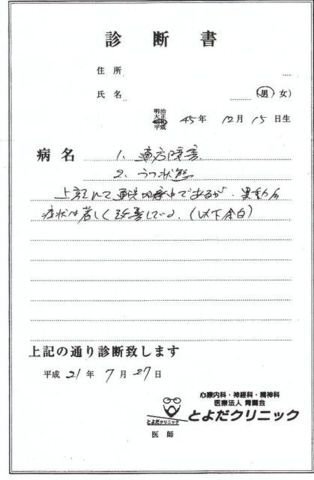 診断書
住所
氏名 (男)女)
明治
大正
昭和
平成
45年 12月 15日生
病名 1. 適応障害
2. うつ状態
上記にて通院加療中であるが、
症状は著しく改善している。(以下余白)
上記の通り診断致します
平成 21年 7月 27日
心療内科・神経科・精神科
医療法人
とよだクリニック
とよだクリニック
医師